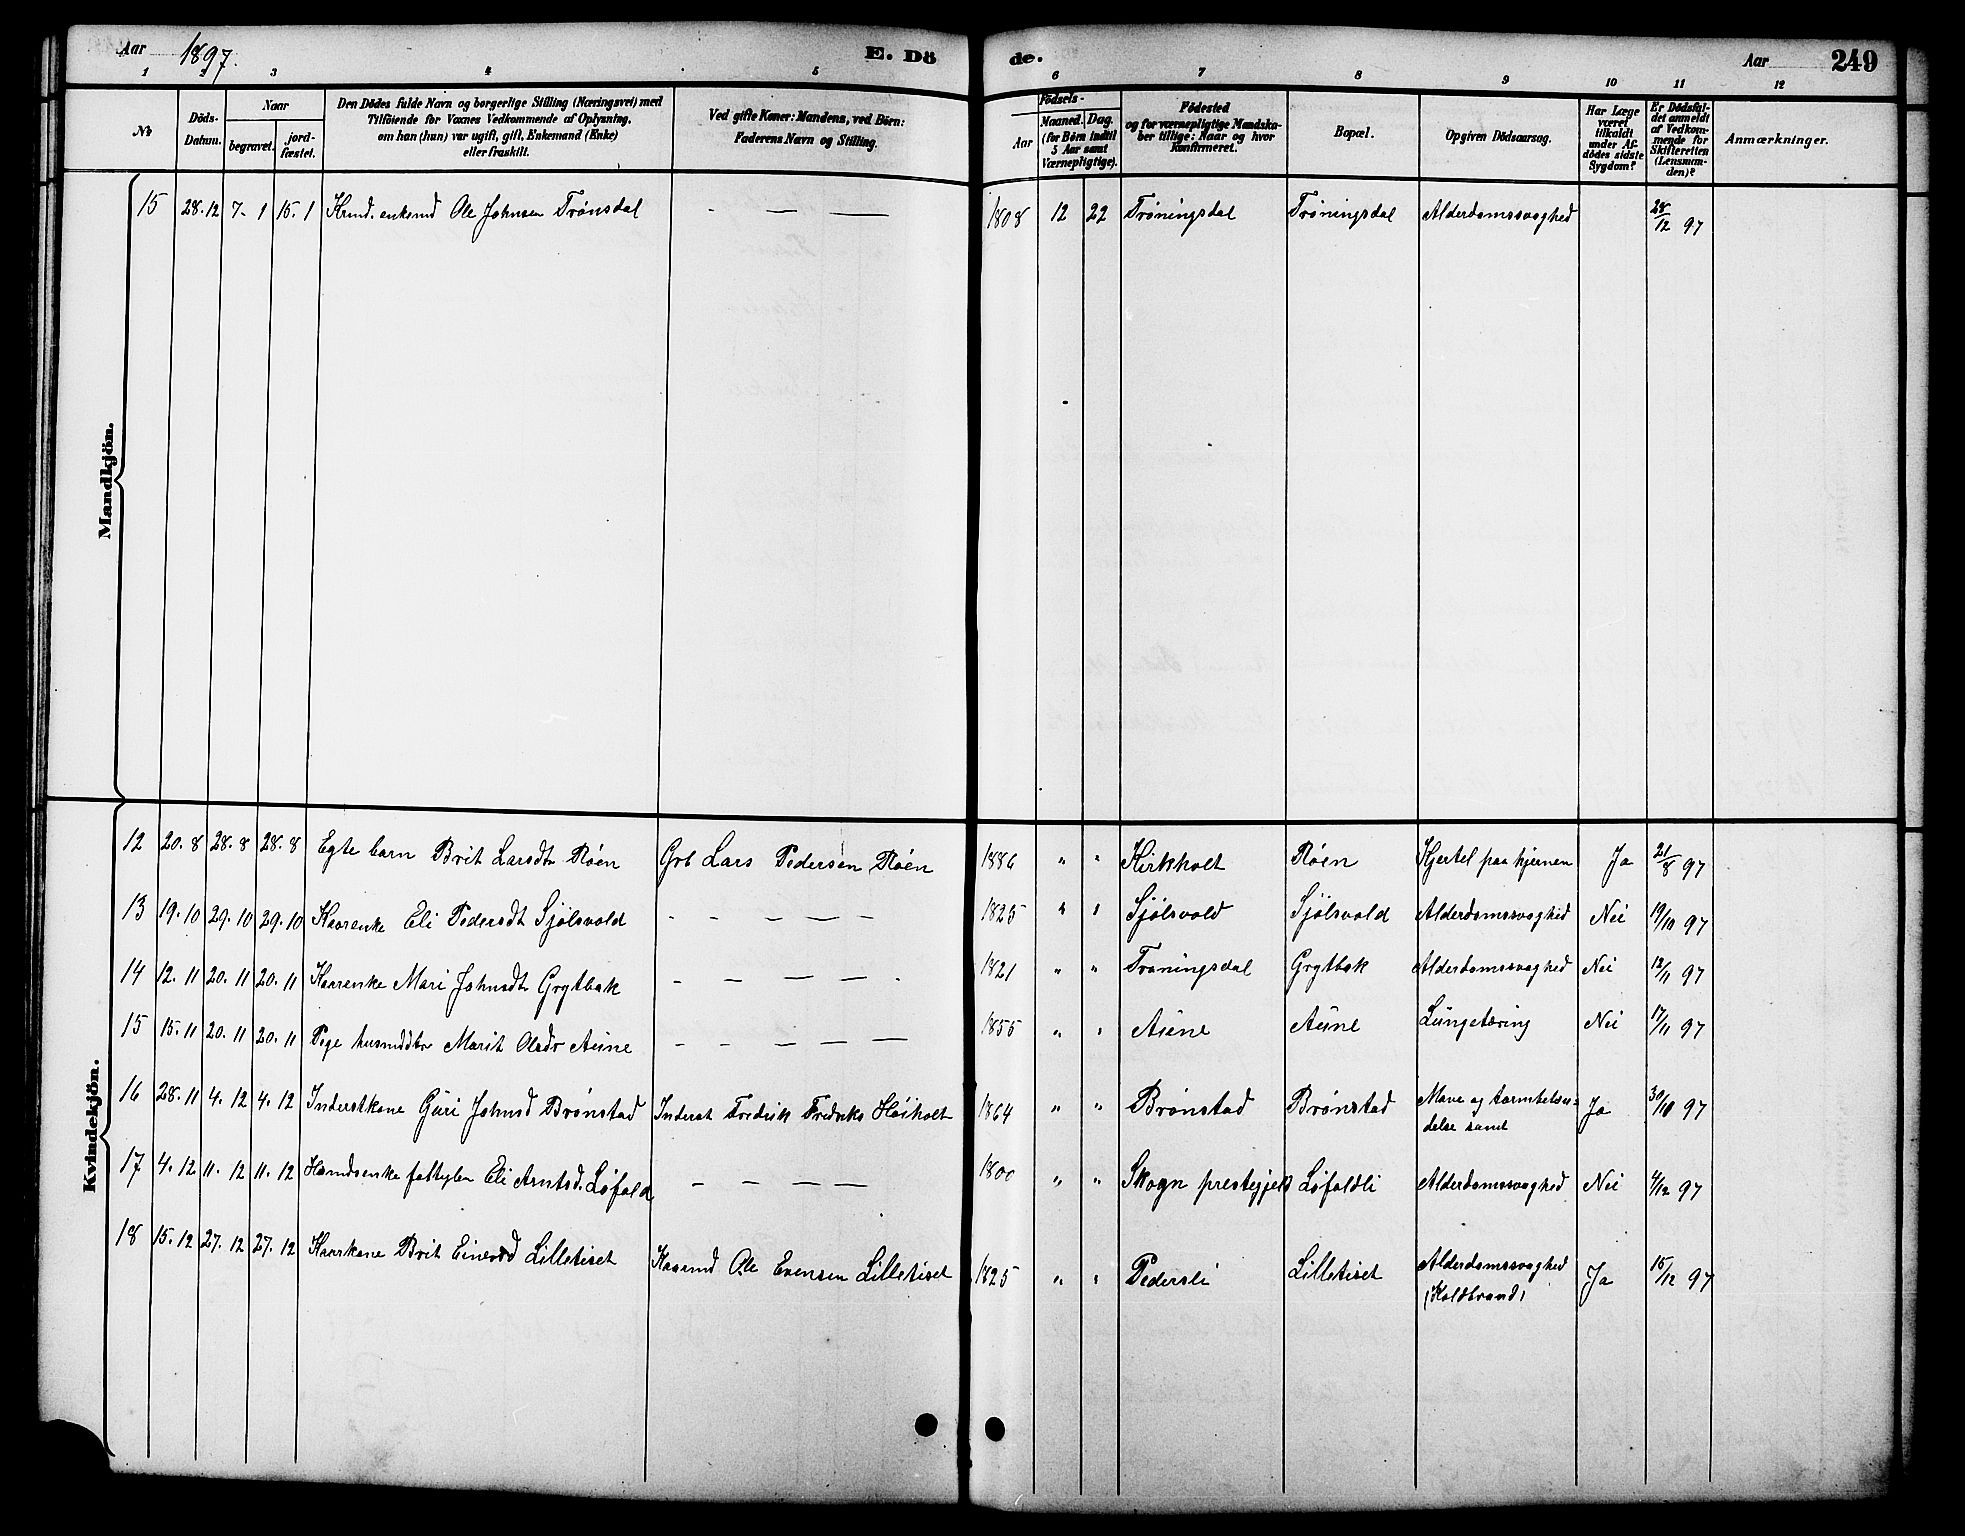 Aar 1897. E. Dö de. Aar 249
1 2 3 4 5 6 7 8 9 10 11 12
No
Döds-
Datum.
Naar
begravet.
jord-
fæstet.
Den Dödes fulde Navn og borgerlige Stilling (Næringsvei) med
Tilföiende for Voxnes Vedkommende af Oplysning,
om han (hun) var ugift, gift, Enkemand (Enke)
eller fraskilt.
Ved gifte Koner: Mandens, ved Börn:
Faderens Navn og Stilling.
Födsels-
Aar
Maaned. Dag.
(for Börn indtil
5 Aar samt
Værnepligtige).
Födested
og for værnepligtige Mandska-
ber tillige: Naar og hvor
konfirmeret.
Bopæl.
Opgiven Dödsaarsag.
Har Læge
været
tilkaldt
under Af-
dödes sidste
Sygdom?
Er Dödsfal-
det anmeldt
af Vedkom-
mende for
Skifteretten
(Lensman-
den)?
Anmærkninger.
Mandkjön.
15 28.12 7-1 15.1 Ole Johnsen Trønsdal - — — 1808 12 22 Trøningsdal Trøningsdal Alderdomssvaghed 28/12 97
Kvindekjön.
12 20.8 28.8 28.8 Egte barn Brit Larsdtr Røen Grb Lars Pedersen Røen 1886 " " Kirkholt Røen Kjertel paa hjernen Ja 21/8 97
13 19.10 29.10 29.10 Kaarenke Eli Pedersdt Sjølsvold - - — — - 1825 " " Sjølsvold Sjølsvold Alderdomssvaghed Nei 19/10 97
14 12.11 20.11 20.11 Kaarenke Mari Johnsdt Grytbak - - — — - 1821 " " Trøningsdal Grytbak Alderdomssvaghed Nei 12/11 97
15 15.11 20.11 20.11 Pige husmddtr Marit Olsdr Aune - - — — — 1855 " " Aune Aune Lungetæring Nei 17/11 97
16 28.11 4.12 4.12 Inderstkone Guri Johnsd Brønstad Inderst Fredrik Fredriks Høiholt 1864 " " Brønstad Brønstad Mave og tarmbetæn-
delse samt Ja 30/10 97
17 4.12 11.12 11.12 Eli Arntsd. Løfald - - — — 1800 " " Skogn prestegjeld Løfaldli Alderdomssvaghed Nei 4/12 97
18 15.12 27.12 27.12 Kaarkone Brit Lilletiset Kaarmd Ole Evensen Lilletiset 1825 " " Pedersli Lilletiset Alderdomssvaghed
(Koldbrand) Ja 15/12 97